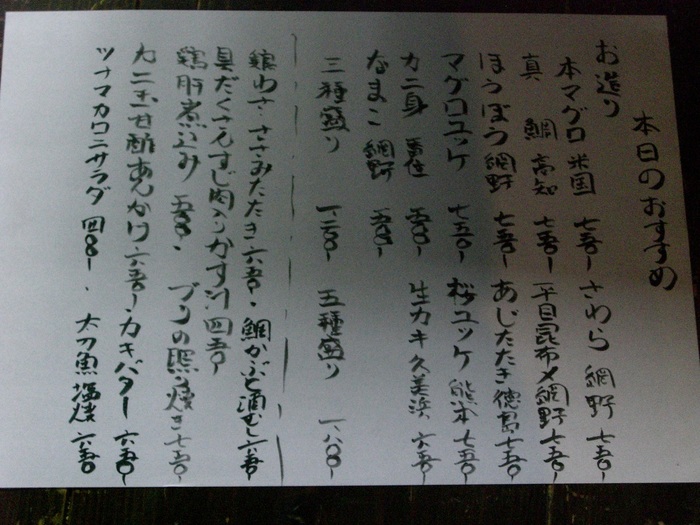 本日のおすすめ
お造り
本マグロ 米国 七五〇ー さわら 網野 七五〇ー
真鯛 高知 七五〇ー 平目昆布〆 網野 七五〇ー
ほうぼう 網野 七五〇ー あじたたき 徳島 七五〇ー
マグロユッケ 七五〇ー 桜ユッケ 熊本 七五〇ー
カニ身 五五〇ー 生カキ 久美浜 六五〇ー
なまこ 網野 五五〇ー
三種盛り 一、二〇〇ー 五種盛り 一、八〇〇ー
鶏わさ・ささみたたき 六五〇・鯛かぶと酒むし 六五〇
具だくさんすじ肉入りかす汁 四五〇ー
鶏肝煮込み 五五〇・ ブリの照り焼き 七五〇ー
カニ玉甘酢あんかけ 六五〇ー・カキバター 六五〇ー
ツナマカロニサラダ 四〇〇ー・ 太刀魚塩焼 六五〇